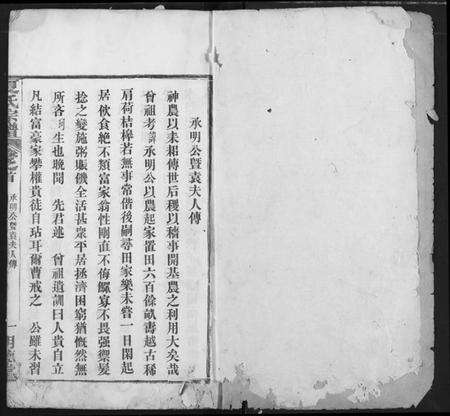 承明公暨袁夫人傳
神農以耒耜傳世后稷以稼事開基農之利用大矣哉
曾祖考 承明公以農起家置田六百餘畝壽越古稀
肩荷桔橰若無事常偕後嗣尋田家樂未嘗一日閑起
居飲食絕不類富家翁性剛直不侮鰥寡不畏强禦髮
捻之變施粥賑饑全活甚衆平居拯濟困窮猶慨然無
所吝 生也晚聞 先君述 曾祖遺訓曰人貴自立
凡結富豪家攀權貴徒自玷耳爾曹戒之 公雖未習
氏宗譜 卷首 承明公暨袁夫人傳 一